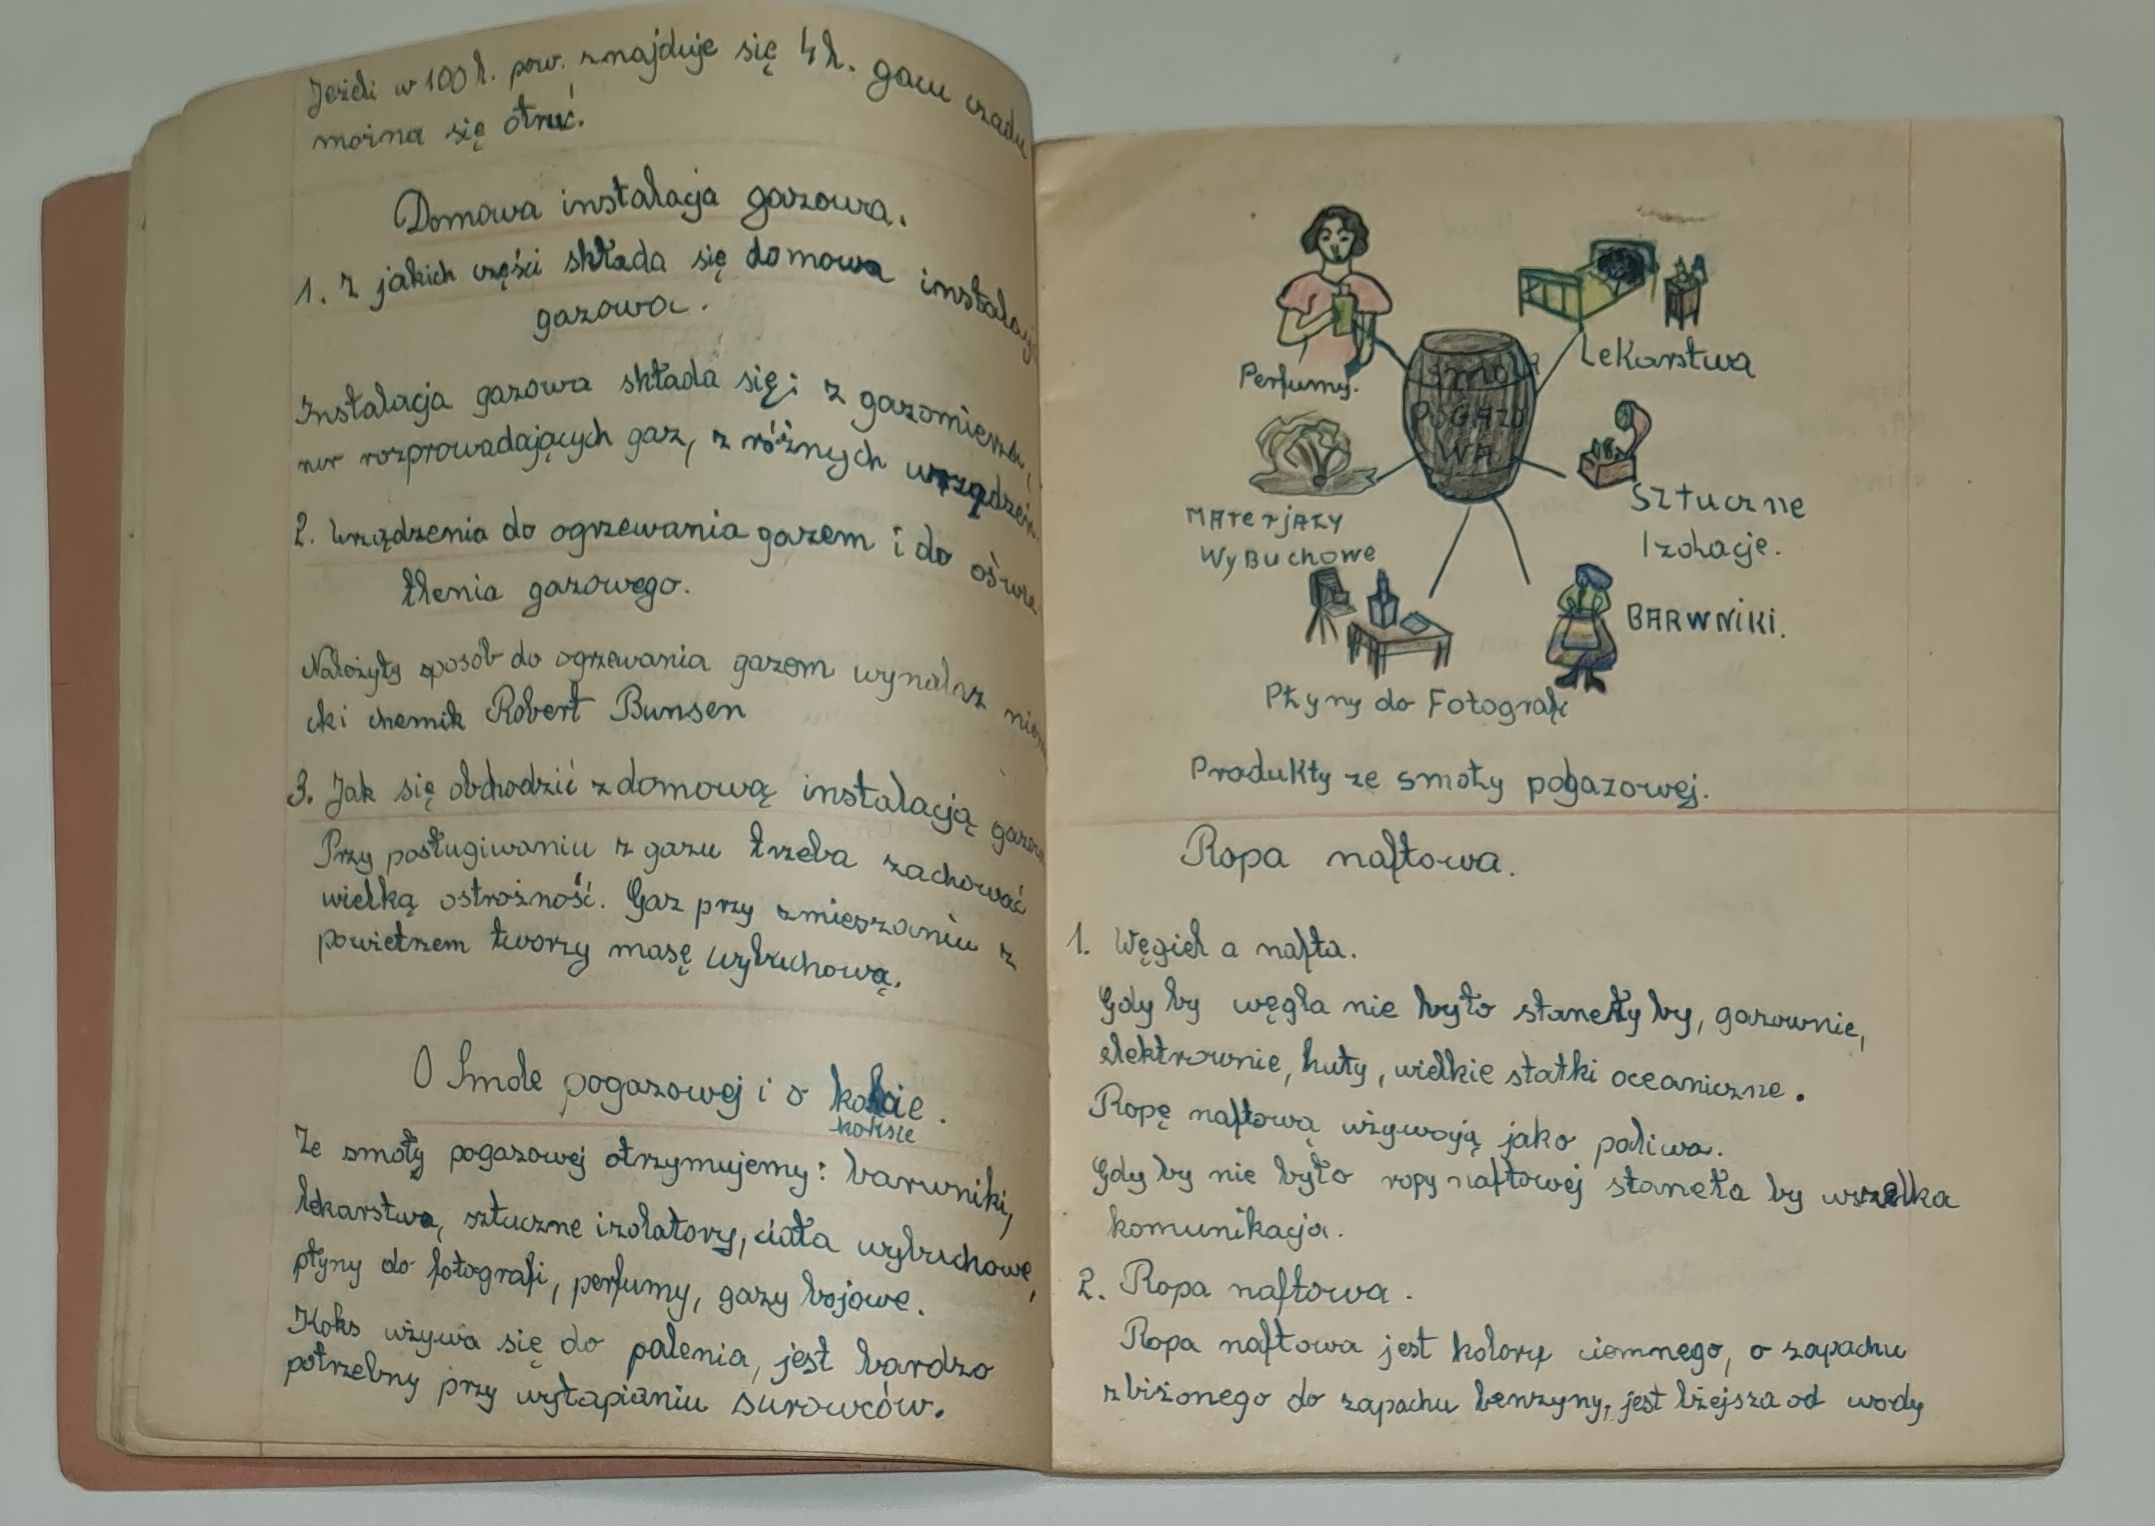 Jeżeli w 100 l. pow. znajduje się 4 l. gazu czadu
można się otruć.
Domowa instalacja gazowa.
1. Z jakich części składa się domowa instalacja
gazowa.
Instalacja gazowa składa się: z gazomierza,
rur rozprowadzających gaz, z różnych urządzeń.
2. Urządzenia do ogrzewania gazem i do oświe
tlenia gazowego.
Należyty sposób do ogrzewania gazem wynalazł niem
cki chemik Robert Bunsen
3. Jak się obchodzić z domową instalacją gazow
Przy posługiwaniu z gazu trzeba zachować
wielką ostrożność. Gaz przy zmieszaniu z
powietrzem tworzy masę wybuchową.
O Smole pogazowej i o
koksie
Ze smoły pogazowej otrzymujemy: barwniki,
lekarstwa, sztuczne izolatory, ciała wybuchowe,
płyny do fotografi, perfumy, gazy bojowe.
Koks używa się do palenia, jest bardzo
potrzebny przy wytapianiu surowców.
Perfumy.
Lekarstwa
Smoła
POGAZO
WA
MAterjAŁY
WyBuchowe
Sztuczne
Izolacje.
BARWNiKi.
Płyny do Fotografi
Produkty ze smoły pogazowej.
Ropa naftowa.
1. Węgiel a nafta.
Gdy by węgla nie było staneły by, gazownie,
elektrownie, huty, wielkie statki oceaniczne.
Ropę naftową używają jako paliwa.
Gdy by nie było ropy naftowej staneła by wszelka
komunikacja.
2. Ropa naftowa.
Ropa naftowa jest koloru ciemnego, o zapachu
zbliżonego do zapachu benzyny, jest lżejsza od wody